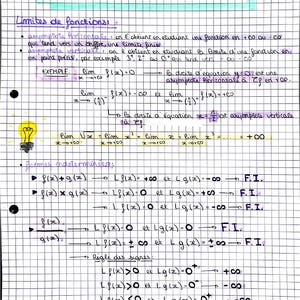 Limites de fonctions :
• asymptote horizontale : on l'obtient en étudiant une fonction en +∞ ou -∞
que tend vers un chiffre, une limite finie.
• asymptote verticale : on l'obtient en étudiant la limite d'une fonction en
un point précis, par exemple 3⁺ 2⁻ ou 0⁺ qui tend vers +∞ ou -∞
EXEMPLE lim f(x) = 0 → la droite d'équation y=0 est une
x→+∞ asymptote horizontale à ζf en +∞.
lim f(x) = -∞ et lim f(x) = +∞
→ la droite d'équation est une asymptote verticale
à ζf.
lim √x = lim x² = lim x = lim x³ = ... = +∞
x→+∞ x→+∞ x→+∞ x→+∞
• formes indéterminées :
► f(x) + g(x) → L f(x) = +∞ et L g(x) = -∞ → F.I.
► f(x) × g(x) → L f(x) = 0 et L g(x) = +∞ → F.I.
→ L f(x) = 0 et L g(x) = -∞ → F.I.
► f(x)/g(x) → L f(x) = 0 et L g(x) = 0 → F.I.
→ L f(x) = ±∞ et L g(x) = ±∞ → F.I.
→ Règle des signes :
L f(x) > 0 et L g(x) = 0⁺ → +∞
L f(x) > 0 et L g(x) = 0⁻ → -∞